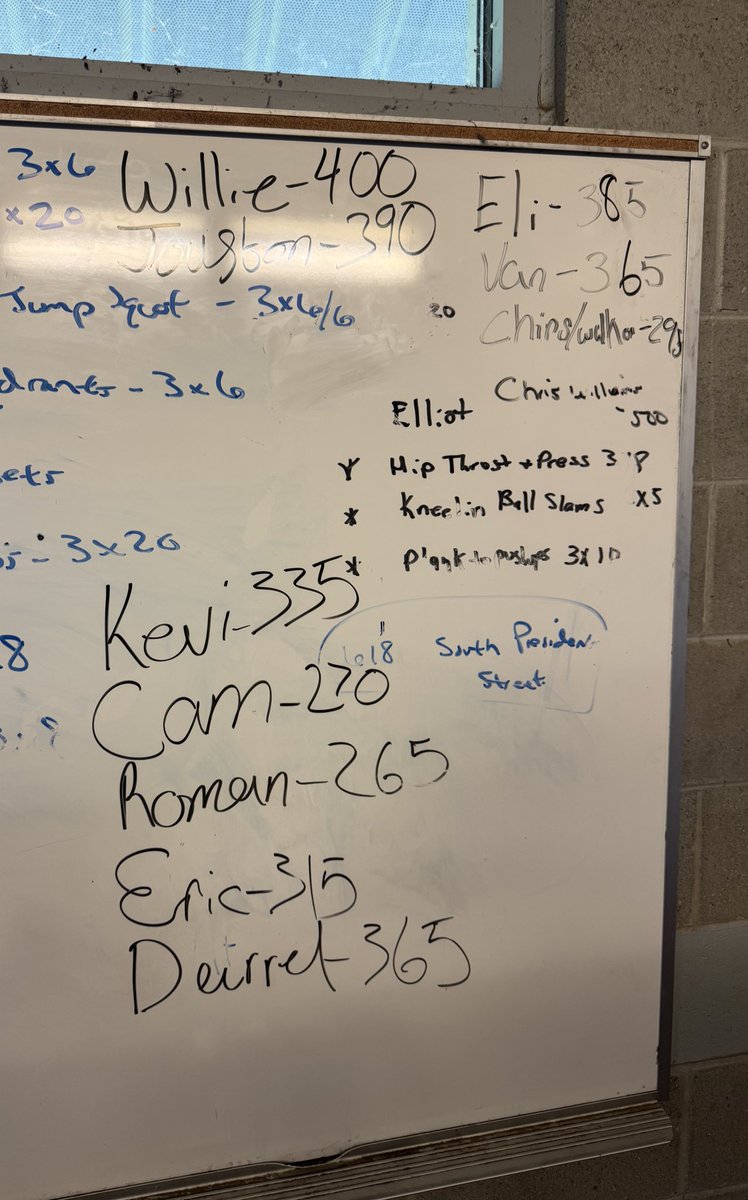 3x6
x20
Willie-400
Jouston-390
Jump Squat - 3x6/6
drants - 3x6
ets
3x20
8
Eli-385
Van-365
20
Chris Williams
-500
Elliot
Hip Thrust + Press 3
* Kneelin Ball Slams x5
* Plank to pushups 3x10
Kevi-335
Cam-270
Roman-265
Eric-315
Deirrel-365
South Presiden
Street